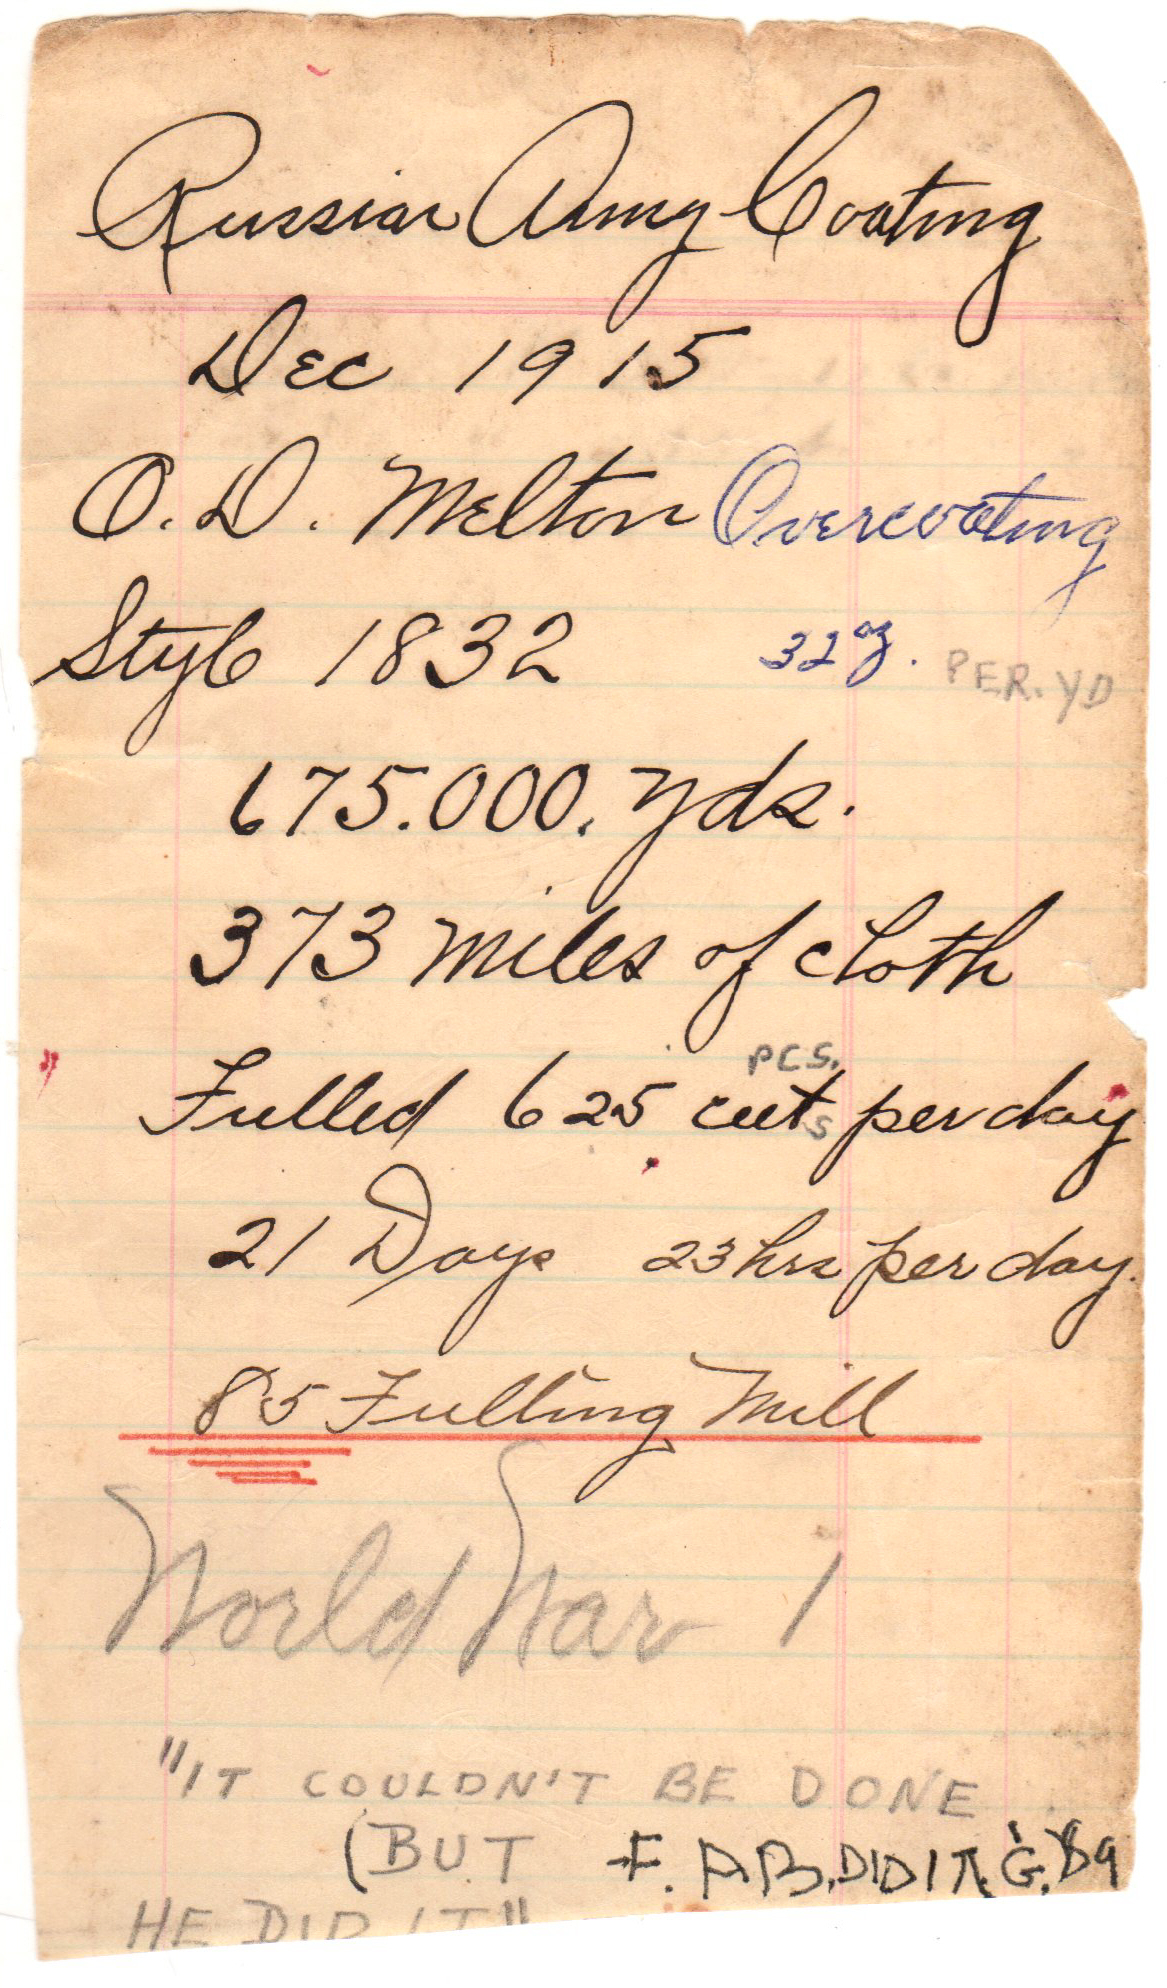 Russian Army Coating
Dec 1915
O.D. Melton Overcoating
Style 1832 32 oz. PER. YD
675.000. yds.
373 miles of cloth
PCS.
Fulled 625 cuts per day
21 Days 23 hrs per day.
85 Fulling Mill
World War 1
"IT COULDN'T BE DONE
(BUT F. A. B. DID IT
HE DID IT"